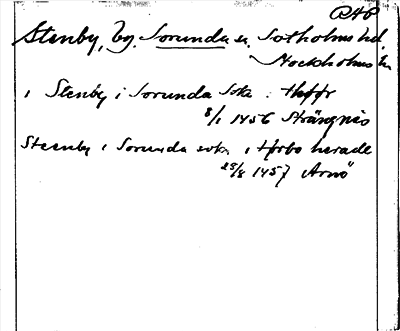 RAP
Stenby, by. Sorunda sn. Sotholms hd,
Stockholms län
i Stenby i Sorunda sokn :
8/1 1456 Strängnäs
Steenby i Sorunda sokn i herade
25/8 1457 Arnö